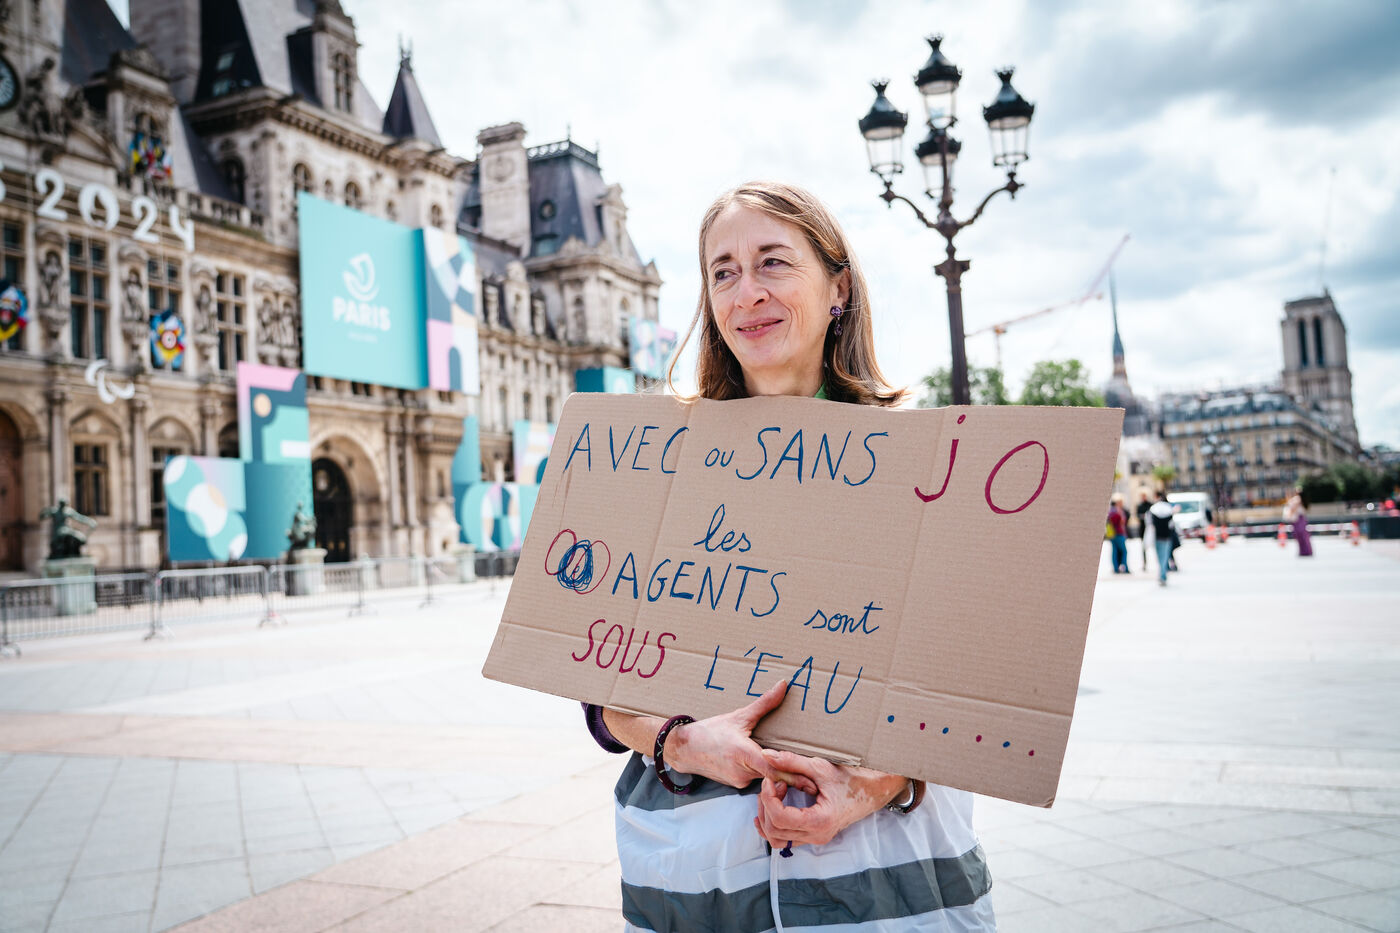 S 2024
PARIS
AVEC ou SANS JO
les
AGENTS sont
SOUS L'EAU......